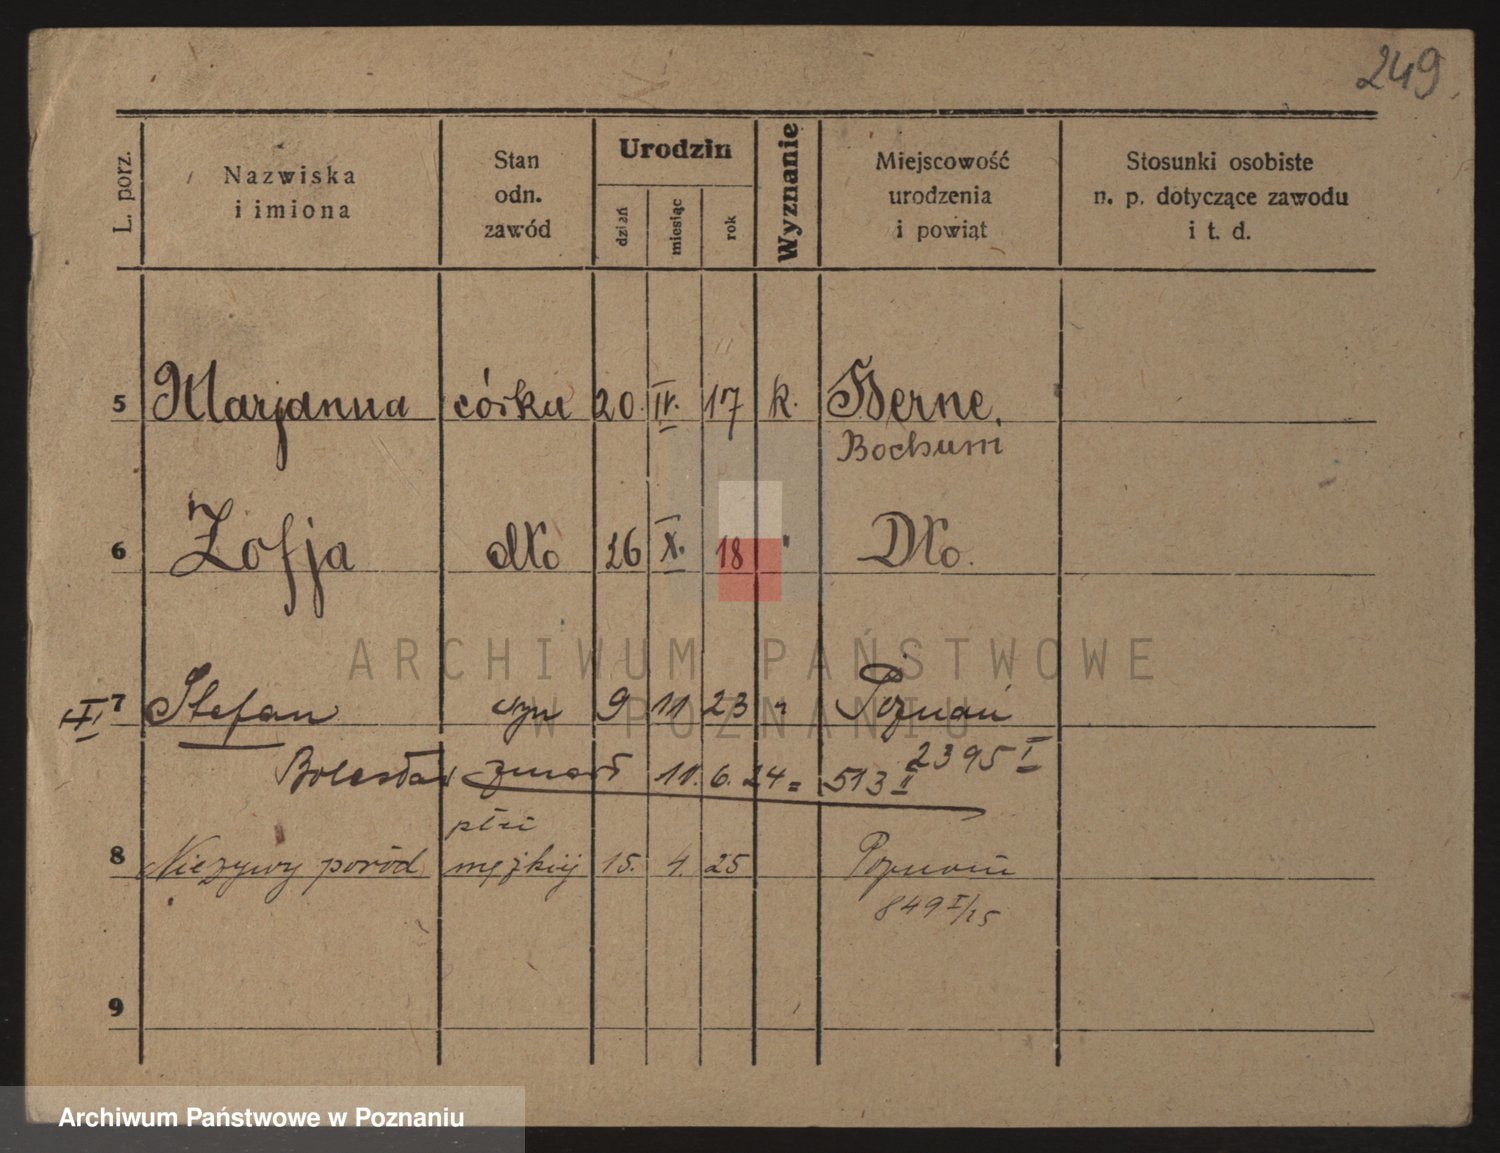 249
L. porz.
Nazwiska
i imiona
Stan
odn.
zawód
Urodzin
dzień
miesiąc
rok
Wyznanie
Miejscowość
urodzenia
i powiąt
Stosunki osobiste
n. p. dotyczące zawodu
i t. d.
5 Marjanna córka 20. IV. 17 k. Herne,
Bochum
6 Zofja dto 26 X. 18 " Dto.
7 Stefan syn 9 11 23 " Poznań
2395 I
Bolesław zmarł 11. 6. 24 = 513 II
płci
8 Nieżywy poród męzkiej 15. 4. 25 Poznań
849 I/25
9
ARCHIWUM PAŃSTWOWE
W POZNANIU
Archiwum Państwowe w Poznaniu